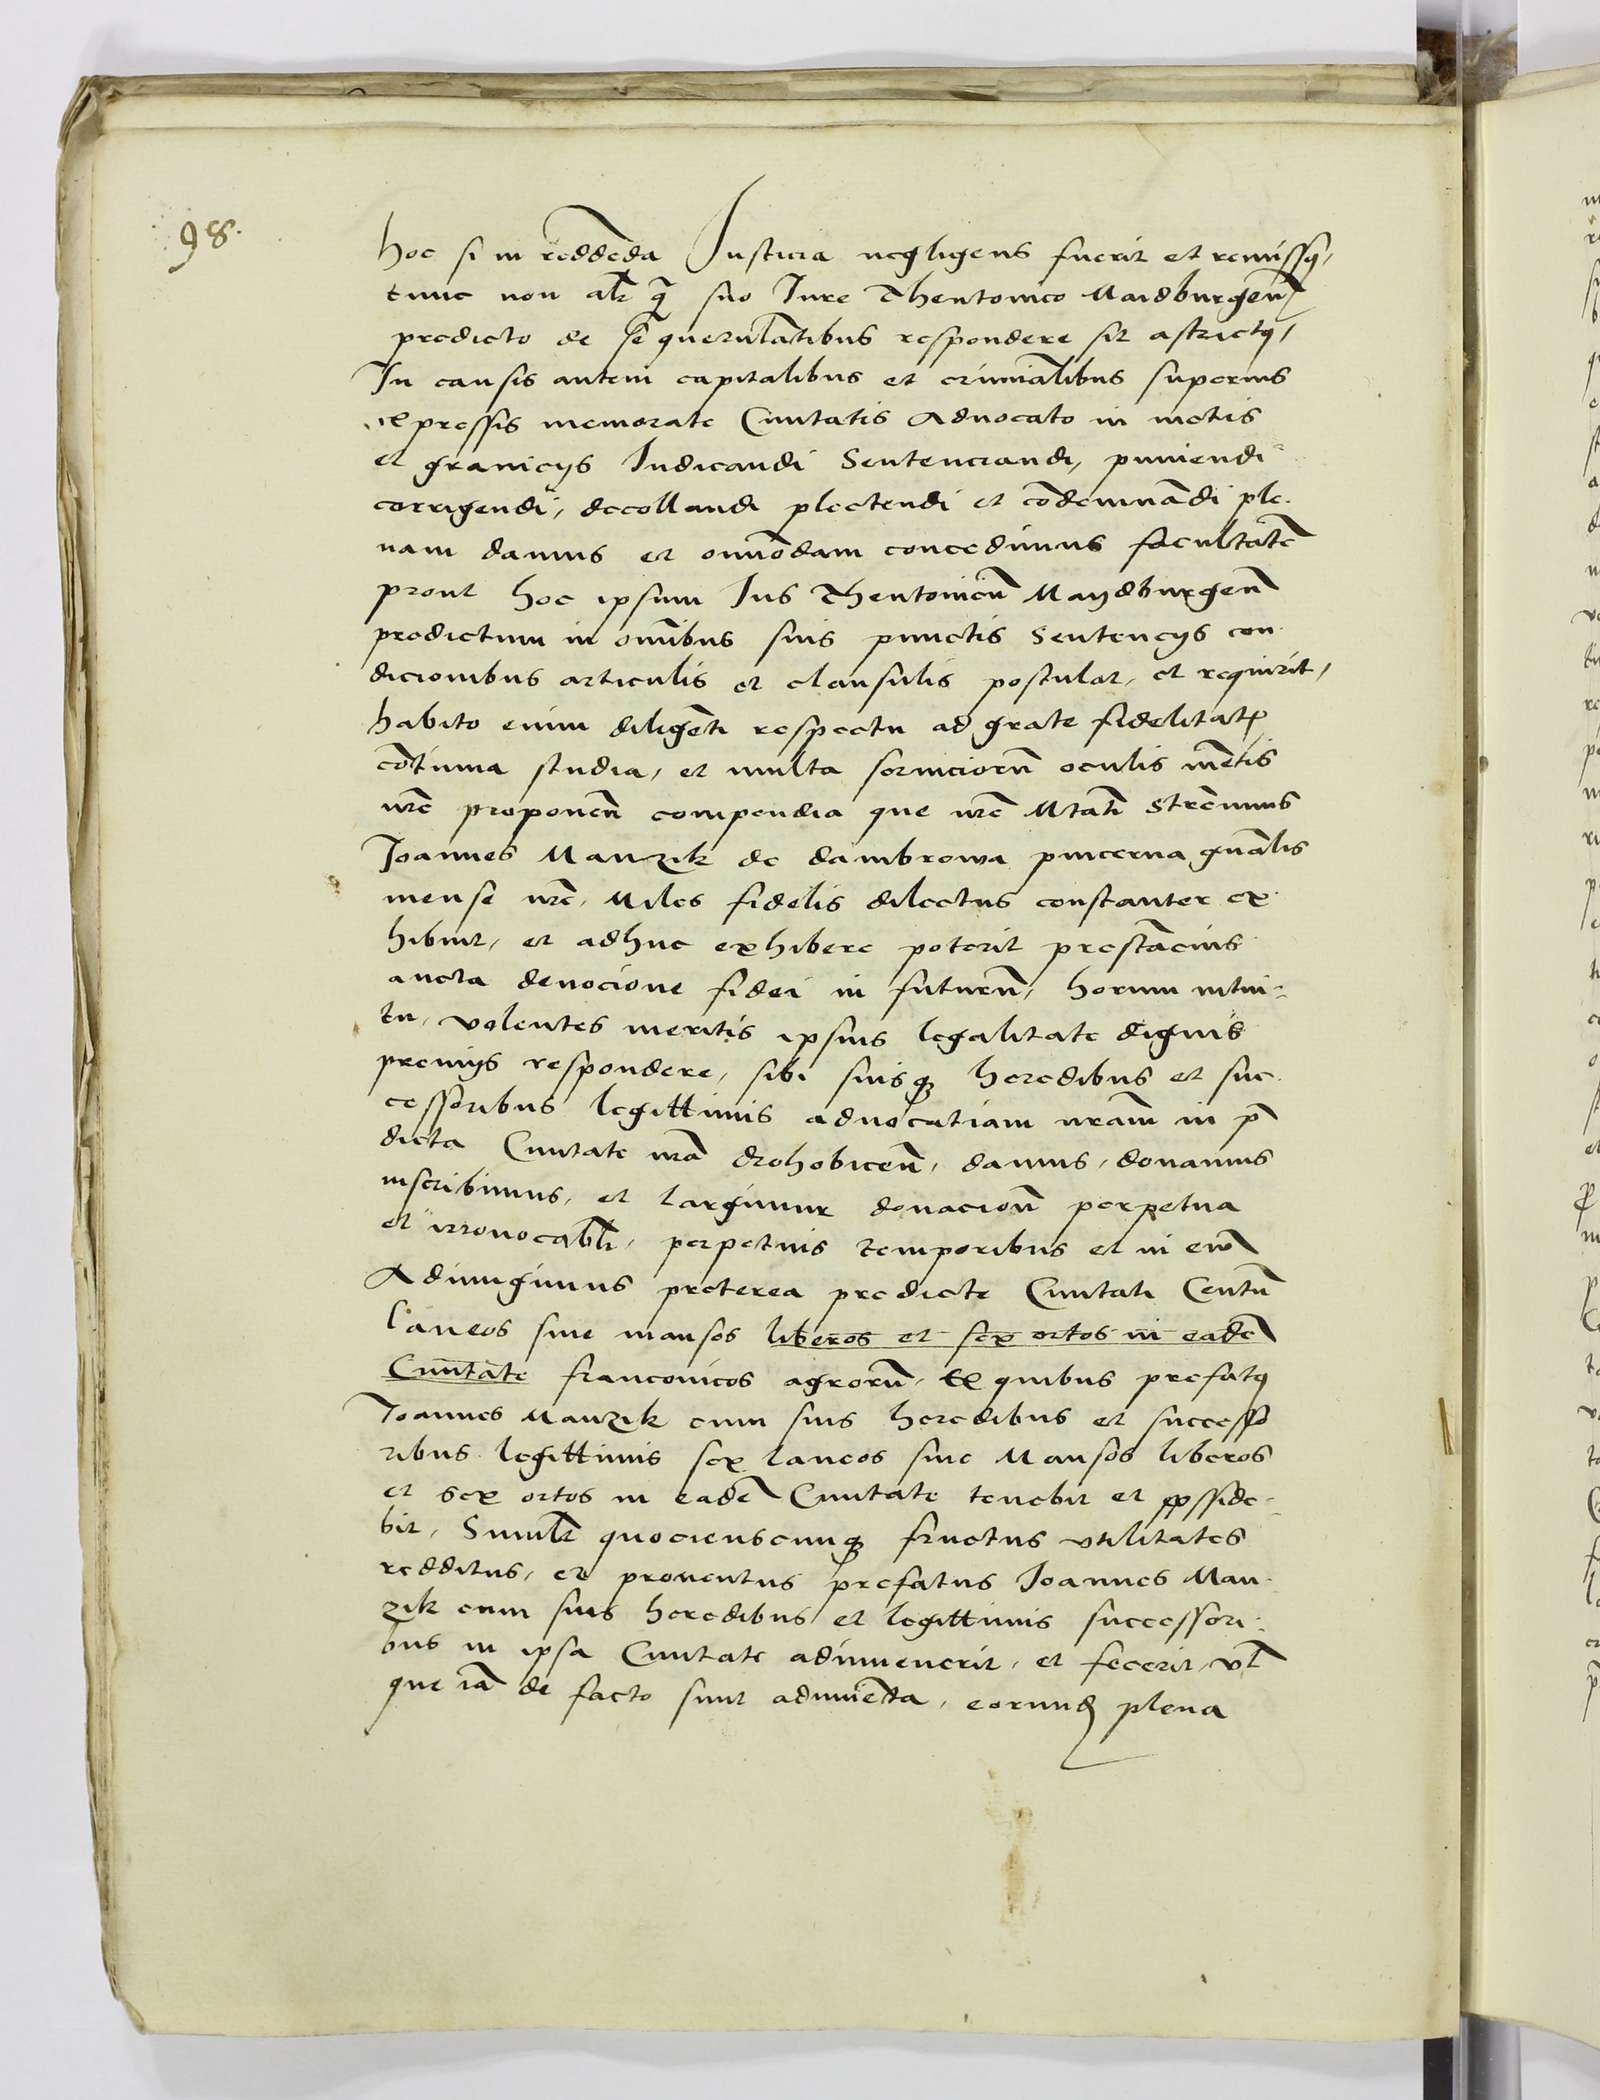 98.
hoc si in reddēda Iusticia negligens fuerit et remissꝯ,
tunc non alr̄ qꝫ suo Iure Theutonico Maidburgen̄
predicto de se querulātibus respondere sit astrictꝯ,
In causis autem capitalibus et criminālibus superius
expressis memorate Ciuitatis Aduocato in metis
et granicijs Iudicandi Sentenciandi, puniendi
corrigendi, decollandi plectendi et cōdemnādi ple-
nam damus et omnōdam concedimus facultatē
prout hoc ipsum Ius Theutonicū Maydburgen̄
predictum in omībus suis punctis Sentencijs con
dicionibus articulis et clausulis postulat, et requirit,
habito enim diligēti respectu ad grate fidelitatꝭ
cōtinua studia, et multa seruiciorū oculis mētis
nr̄e proponen̄ compendia que nr̄e Mtati Strēnuus
Joannes Manzik de dambrowa pincerna gnālis
mense nr̄e, Miles fidelis dilectus constanter ex
hibuit, et adhuc exhibere poterit prestācius
aucta deuocione fidei in futurū, horum intui-
tu, volentes meritis ipsius legalitate dignis
premijs respondere, sibi suisqꝫ heredibus et suc
cessoribus legittimis aduocatiam nr̄am in p̄
dicta Ciuitate nr̄a drohobicen̄, damus, donamus
inscribimus, et largimur donacion̄ perpetua
et irreuocabli, perpetuis temporibus et in euū
Adiungimus preterea predicte Ciuitati Centū
laneos siue mansos liberos et sex ortos in eadē
Ciuitate franconicos agrorū, Ex quibus prefatꝯ
Joannes Manzik cum suis heredibus et successo
ribus legittimis sex laneos siue Mansos liberos
et sex ortos in eadē Ciuitate tenebit et posside-
bit, Simulr̄ quocienscunqꝫ fructus vtilitates
redditus, et prouentus prefatus Joannes Man
zik cum suis heredibus et legittimis successori-
bus in ipsa Ciuitate adinuenerit, et fecerit, vl̄
que iā de facto sunt adinuēta, eorundꝫ plena